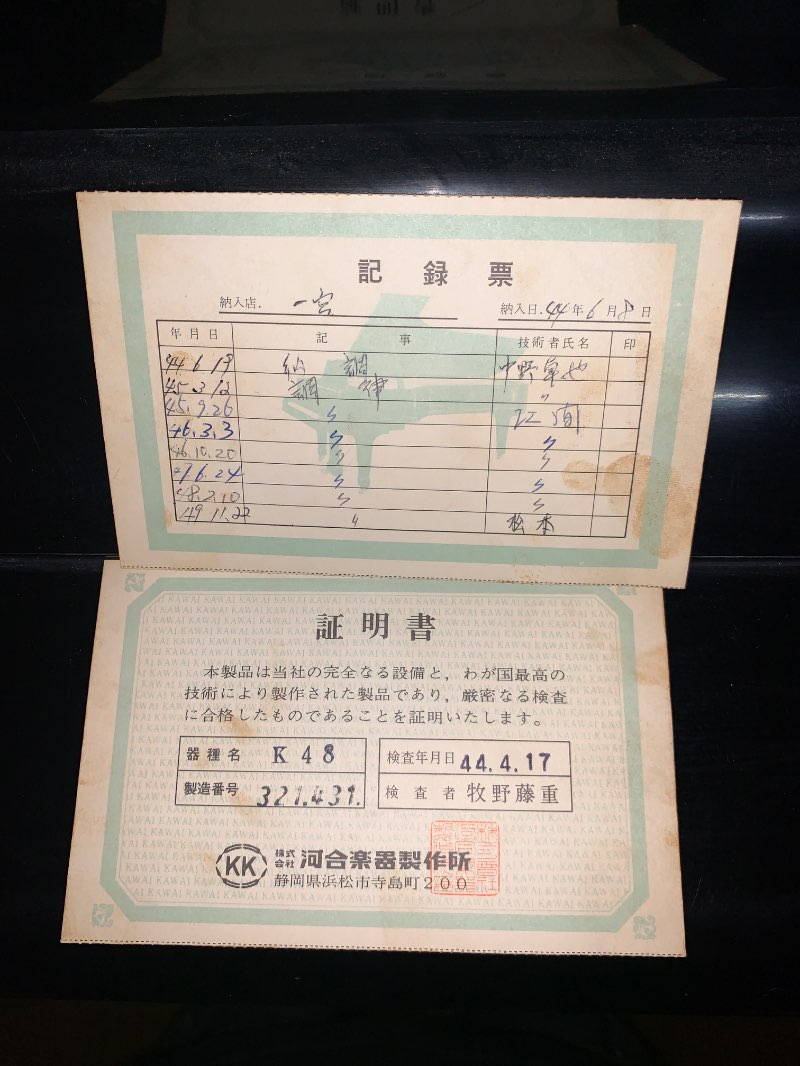 記録票
納入店. 一宮 納入日. 44年6月8日
年月日 記事 技術者氏名 印
44.6.19 納調 中野
45.3.12 調律 〃
45.9.26 〃
46.3.3 〃 〃
46.10.20 〃 〃
47.6.24 〃 〃
48.2.10 〃 〃
49.11.22 〃 松本
証明書
本製品は当社の完全なる設備と，わが国最高の
技術により製作された製品であり，厳密なる検査
に合格したものであることを証明いたします。
器種名 K48 検査年月日 44.4.17
製造番号 321.431. 検査者 牧野藤重
KK 株式会社 河合楽器製作所
静岡県浜松市寺島町200